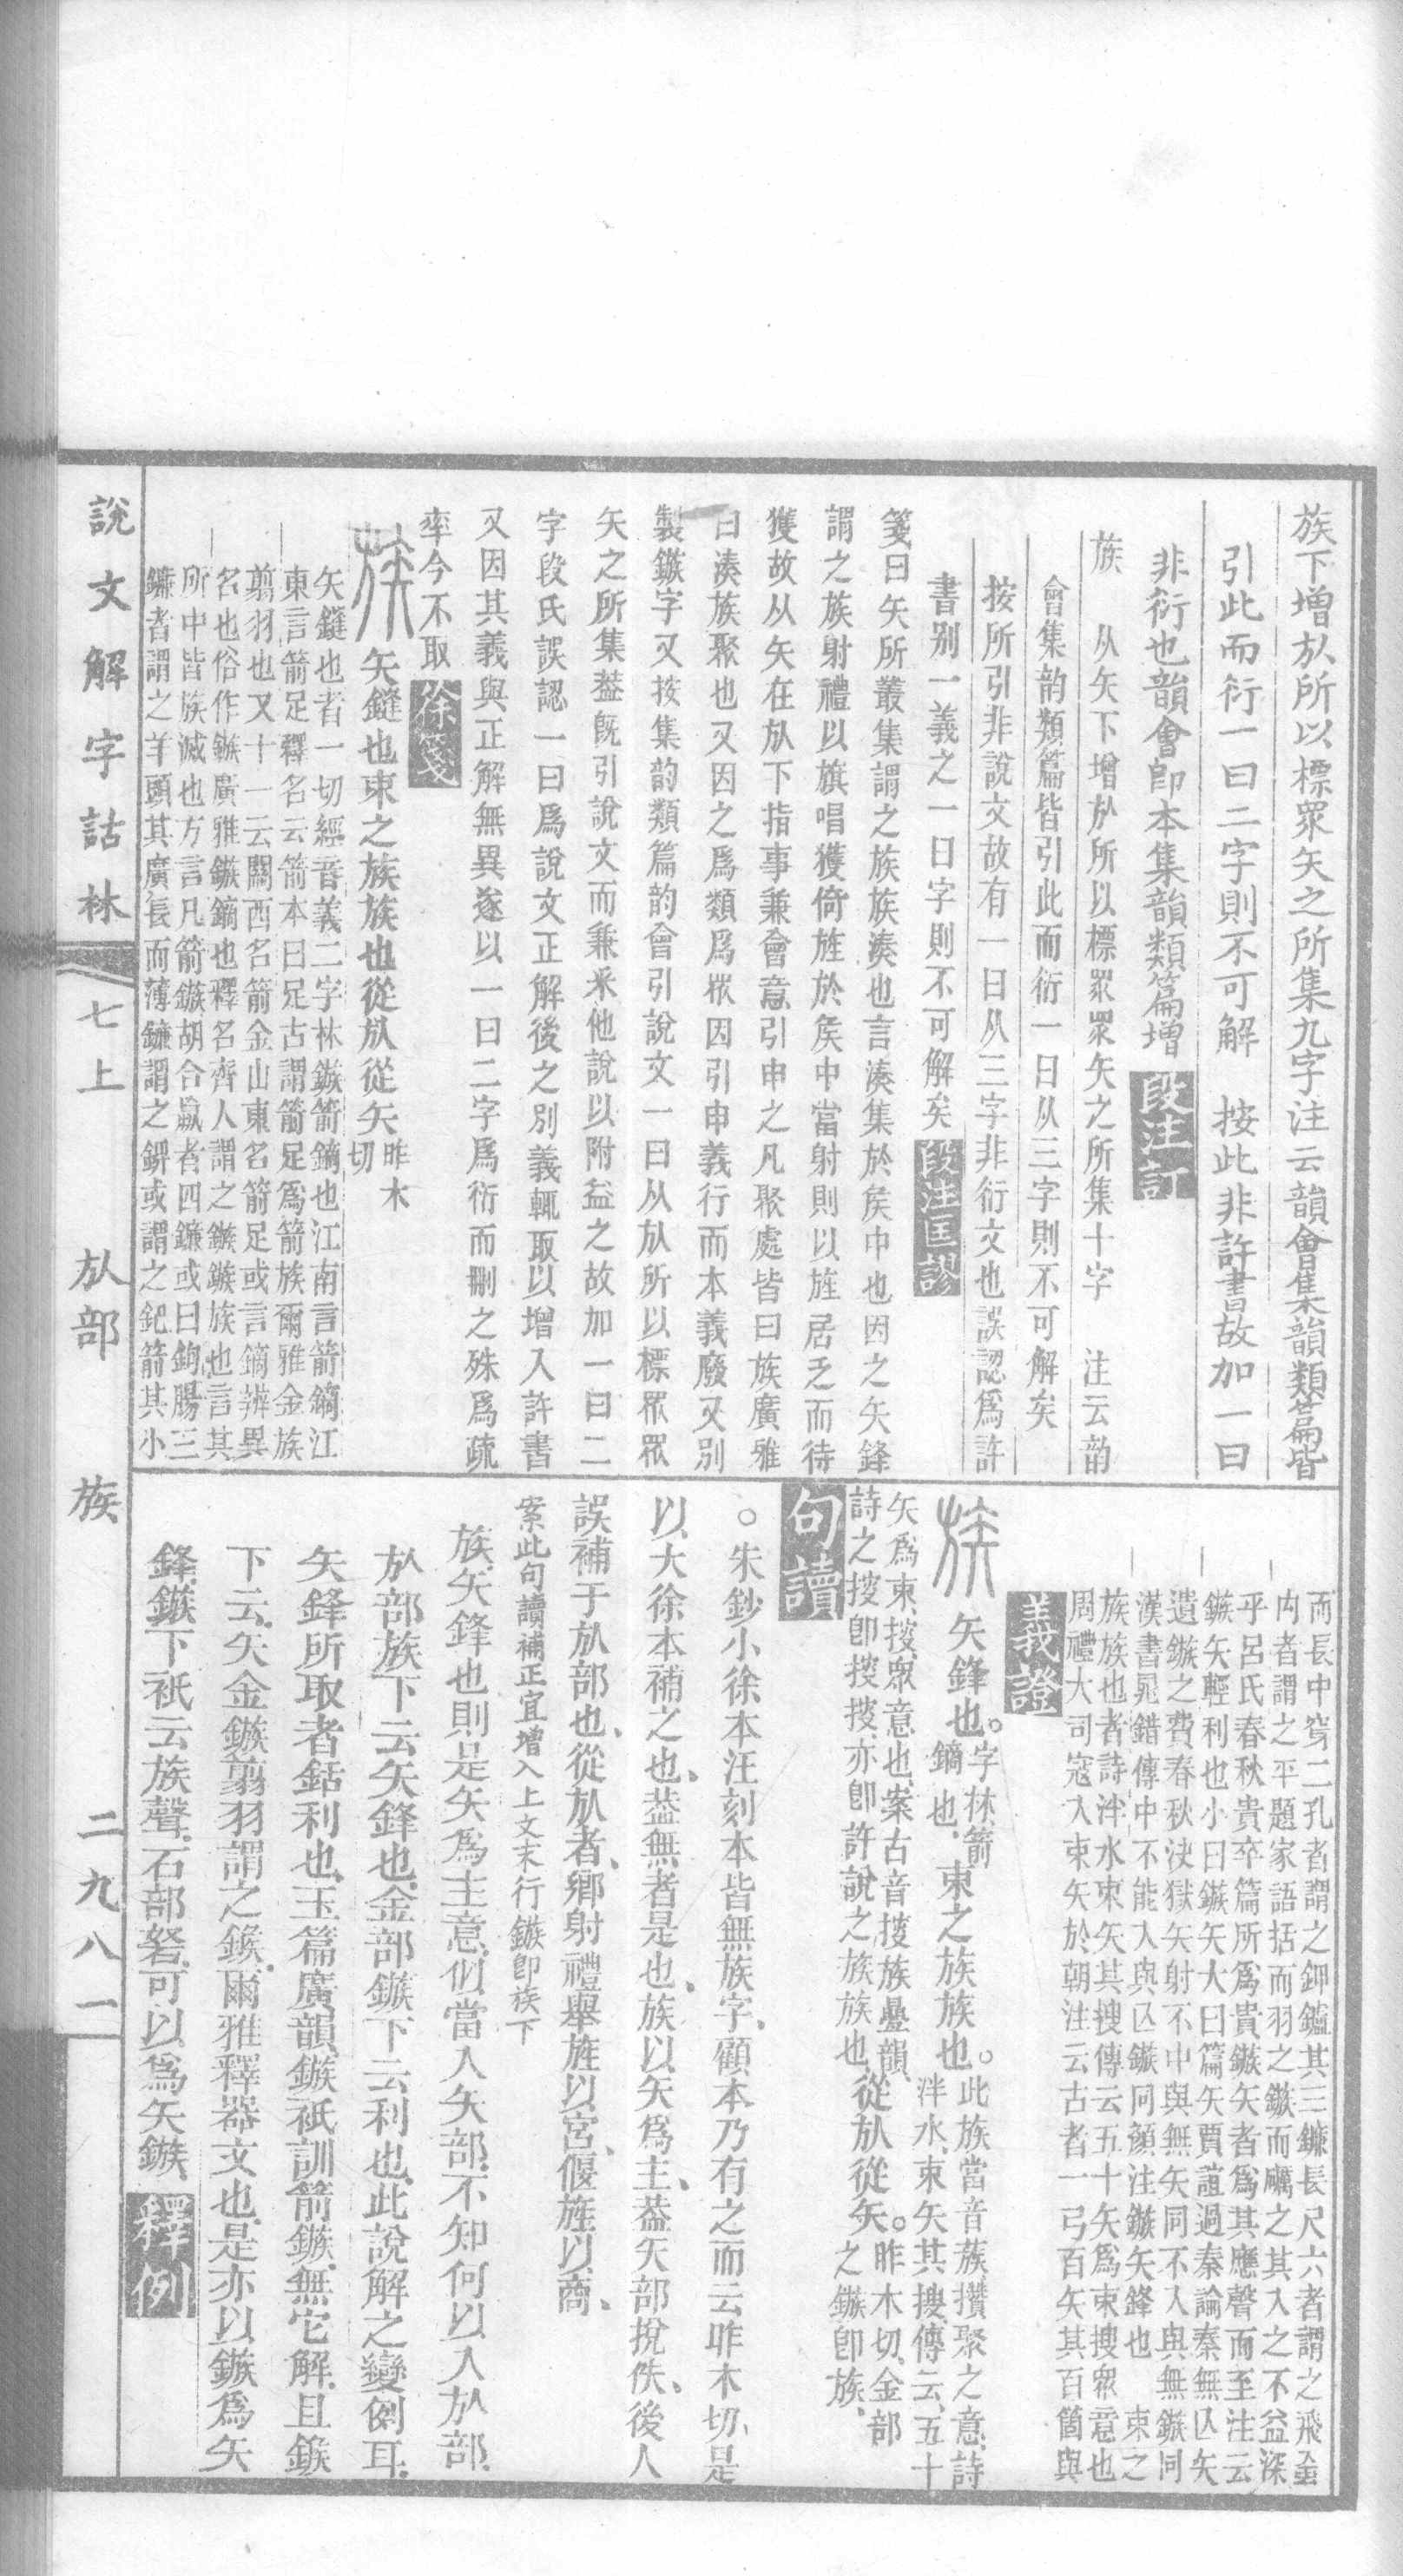 族下增㫃所以標眾矢之所集九字注云韻會集韻類篇皆
引此而衍一曰二字則不可解　按此非許書故加一曰
非衍也韻會卽本集韻類篇增　段注訂
族　从矢下增㫃所以標眾眾矢之所集十字　注云韵
會集韵類篇皆引此而衍一曰从三字則不可解矣
按所引非說文故有一曰从三字非衍文也誤認爲許
書別一義之一曰字則不可解矣　段注匡謬
箋曰矢所叢集謂之族族湊也言湊集於矦中也因之矢鋒
謂之族射禮以旗唱獲倚旌於矦中當射則以旌居乏而待
獲故从矢在㫃下指事兼會意引申之凡聚處皆曰族廣雅
曰湊族聚也又因之爲類爲眾因引申義行而本義廢又別
製鏃字又按集韵類篇韵會引說文一曰从㫃所以標眾眾
矢之所集葢旣引說文而兼采他說以附益之故加一曰二
字段氏誤認一曰爲說文正解後之別義輒取以增入許書
又因其義與正解無異遂以一曰二字爲衍而刪之殊爲疏
率今不取　徐箋
族　矢鏠也束之族族也從㫃從矢昨木切
矢鏠也者一切經音義二字林鏃箭鏑也江南言箭鏑江
東言箭足釋名云箭本曰足古謂箭足爲箭族爾雅金族
翦羽也又十一云關西名箭金山東名箭足或言鏑辨異
名也俗作鏃廣雅鏃鏑也釋名齊人謂之鏃鏃族也言其
所中皆族滅也方言凡箭鏃胡合嬴者四鐮或曰鉤腸三
鐮者謂之羊頭其廣長而薄鐮謂之錍或謂之鈀箭其小
而長中穿二孔者謂之鉀鑪其三鐮長尺六者謂之飛䖝
内者謂之平題家語括而羽之鏃而礪之其入之不益深
乎呂氏春秋貴卒篇所爲貴鏃矢者爲其應聲而至注云
鏃矢輕利也小曰鏃矢大曰篇矢賈誼過秦論秦無亾矢
遺鏃之費春秋決獄矢射不中與無矢同不入與無鏃同
漢書鼂錯傳中不能入與亾鏃同顏注鏃矢鋒也　束之
族族也者詩泮水束矢其搜傳云五十矢爲束搜眾意也
周禮大司寇入束矢於朝注云古者一弓百矢其百箇與
義證
族　矢鋒也。字林箭鏑也、束之族族也。此族當音蔟攢聚之意、詩泮水、束矢其搜、傳云、五十
矢爲束、搜、眾意也、案古音搜族疊韻、詩之搜卽搜搜、亦卽許說之族族也、從㫃從矢。昨木切、金部之鏃卽族、
句讀
○朱鈔小徐本汪刻本皆無族字、顧本乃有之而云昨木切、是
以大徐本補之也、葢無者是也、族以矢爲主、葢矢部捝佚、後人
誤補于㫃部也、從㫃者、鄉射禮舉旌以宮、偃旌以商、
案此句讀補正宜增入上文末行鏃卽族下
族、矢鋒也、則是矢爲主意、似當入矢部、不知何以入㫃部、
㫃部族下云矢鋒也、金部鏃下云利也、此說解之變例耳、
矢鋒所取者銛利也、玉篇廣韻、鏃祇訓箭鏃、無它解、且鍭
下云、矢金鏃翦羽謂之鍭、爾雅釋器文也、是亦以鏃爲矢
鋒、鏃下祇云族聲、石部砮、可以爲矢鏃、　釋例
說文解字詁林　七上　㫃部　族　二九八一